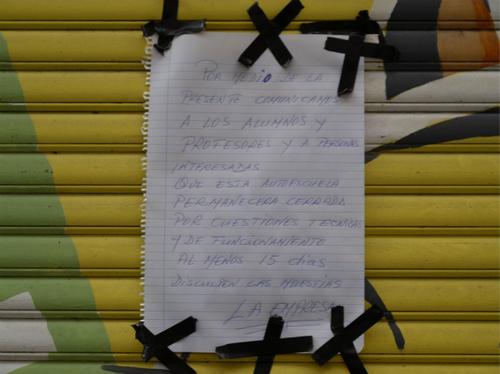 POR MEDIO DE LA
PRESENTE COMUNICAMOS
A LOS ALUMNOS Y
PROFESORES Y A PERSONAS
INTERESADAS
QUE ESTA AUTOESCUELA
PERMANECERA CERRADA
POR CUESTIONES TECNICAS
Y DE FUNCIONAMIENTO
AL MENOS 15 dias
DISCULPEN LAS MOLESTIAS
LA EMPRESA